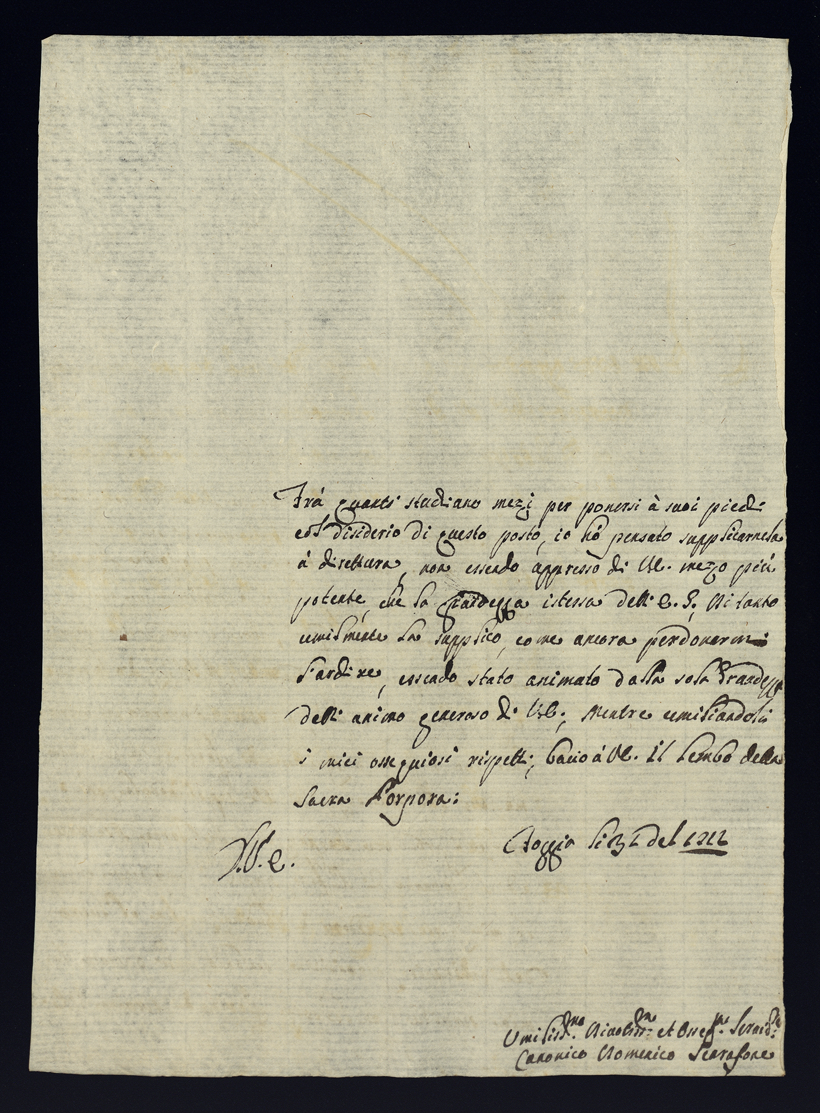 Frà quanti studiano mezi per ponersi à suoi piedi
col disiderio di questo posto, io hò pensato supplicarnela
à direttura, non essendo appresso di VE. mezo più
potente, che la grandezza istessa dell' E. S., Di tanto
umilmente la supplico, come ancora perdonarmi
l'ardire, essendo stato animato dalla sola Grandezza
dell' animo generoso di VE., Mentre umiliandoli
i miei ossequiosi rispetti, bacio à VE. il lembo della
Sacra Porpora:
Foggia li del
V. E.
Umiliss.mo Divotiss.mo et Osseq.mo Servid.e
Canonico Domenico Scarafone